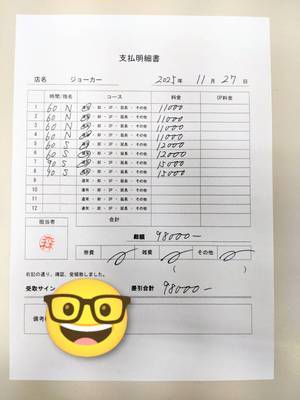 支払明細書
店名 ジョーカー 2025年 11月 27日
時間/指名 コース 料金 OP料金
1 60 N 通常・即・OP・延長・その他 11000
2 60 N 通常・即・OP・延長・その他 11000
3 60 N 通常・即・OP・延長・その他 11000
4 60 N 通常・即・OP・延長・その他 11000
5 60 S 通常・即・OP・延長・その他 12000
6 60 S 通常・即・OP・延長・その他 12000
7 90 S 通常・即・OP・延長・その他 15000
8 90 S 通常・即・OP・延長・その他 15000
9 通常・即・OP・延長・その他
10 通常・即・OP・延長・その他
11 通常・即・OP・延長・その他
12 通常・即・OP・延長・その他
担当者 合計
総額 98000-
寮費 雑費 その他
( )
右記の通り、確認、受領致しました。
受取サイン 差引合計 98000-
備考